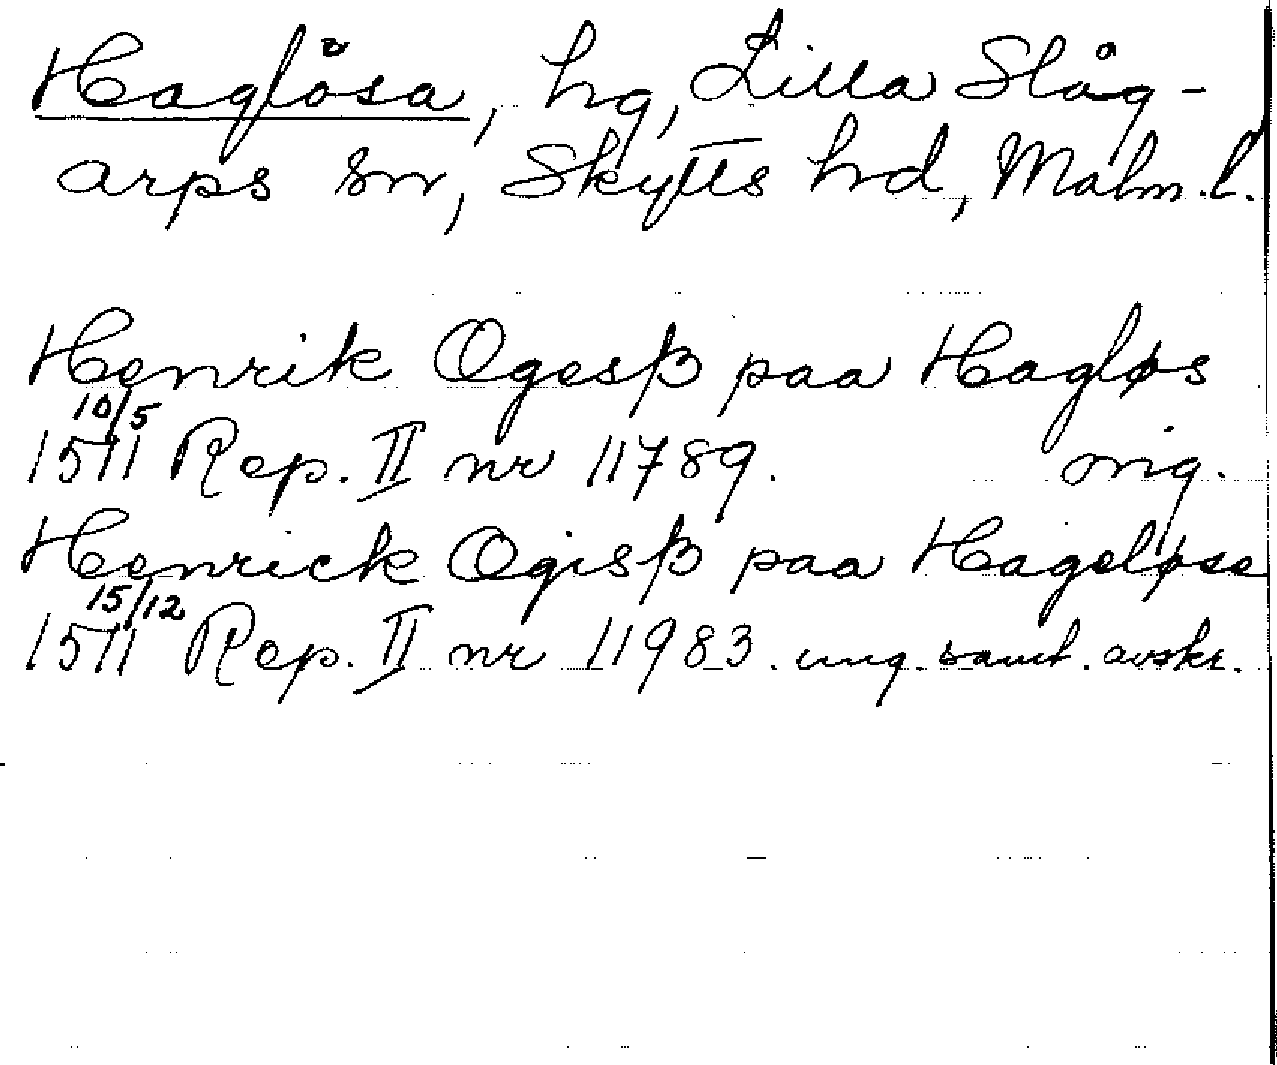 Haglösa, hg, Lilla Slåg-
arps sn, Skytts hd, Malm. l.
Henrik Ogesß paa Hagløs
10/5
1511 Rep. II nr 11789. orig.
Henrick Ogisß paa Hageløse
15/12
1511 Rep. II nr 11983. ung. samt. avskr.